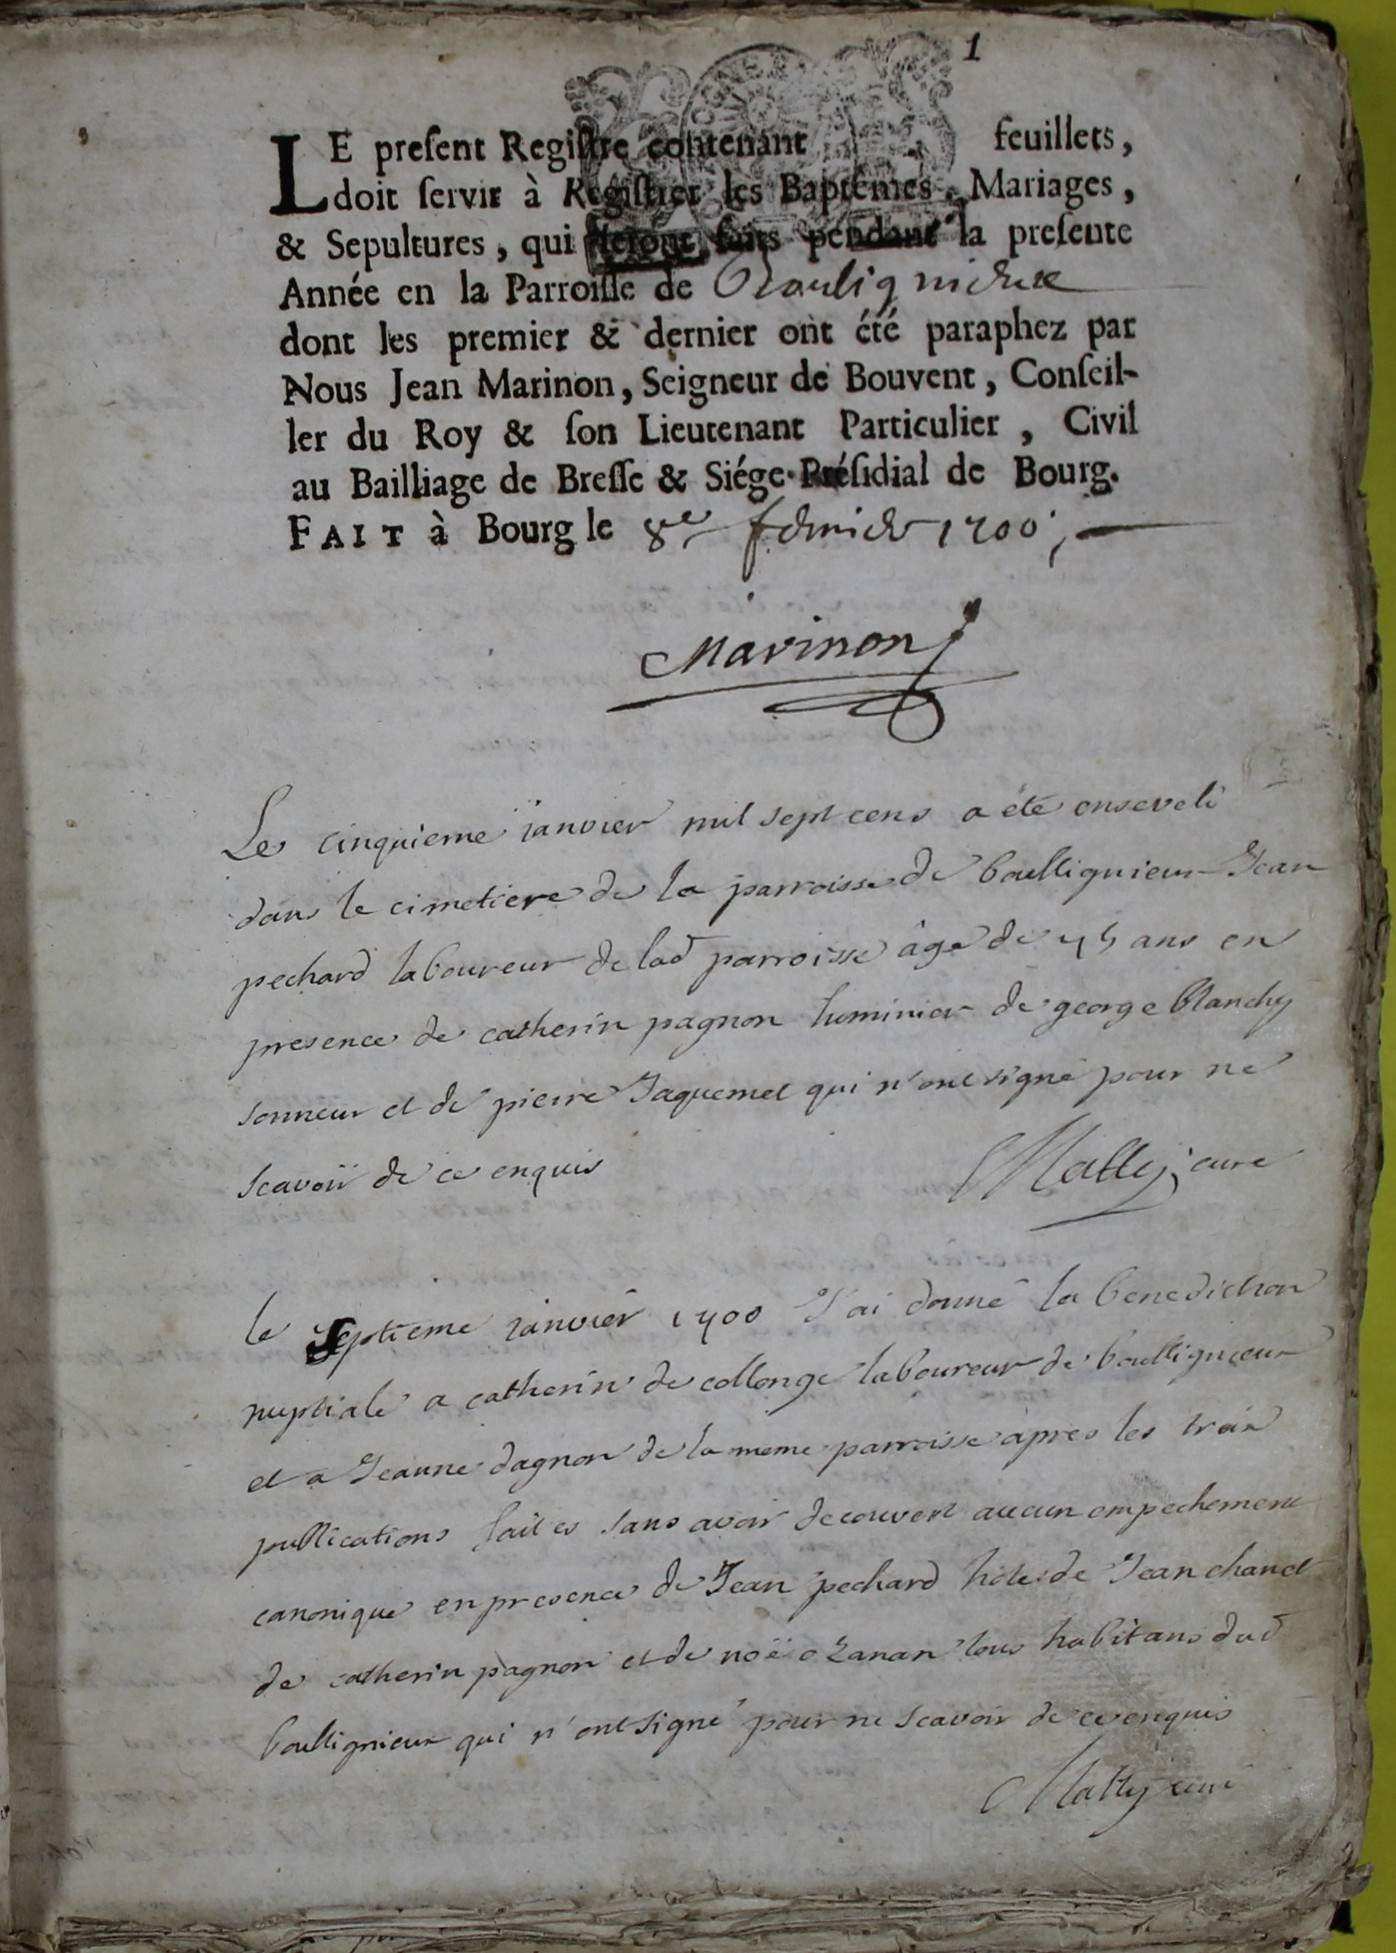 1
LE preſent Regiſtre contenant feuillets,
doit ſervir à Regiſtrer les Baptêmes, Mariages,
& Sepultures, qui ſeront faits pendant la preſente
Année en la Parroiſſe de Boulignieux
dont les premier & dernier ont été paraphez par
Nous Jean Marinon, Seigneur de Bouvent, Conſeil-
ler du Roy & ſon Lieutenant Particulier, Civil
au Bailliage de Breſſe & Siége Préſidial de Bourg.
FAIT à Bourg le 8e febvrier 1700;
Marinon
Le cinquieme janvier mil sept cens a été enseveli
dans le cimetiere de la parroisse de boullignieux Jean
pechard laboureur de lad parroisse âgé de 45 ans en
presence de catherin pagnon luminier de george blanchy
sonneur et de pierre Jaquemet qui n'ont signé pour ne
scavoir de ce enquis
Matty curé
le septieme janvier 1700 J'ai donné la benediction
nuptiale a catherin de collonge laboureur de boullignieux
et a Jeanne dagnon de la meme parroisse apres les trois
publications faites sans avoir decouvert aucun empechement
canonique en presence de Jean pechard hôte de Jean chanet
de catherin pagnon et de noë ozanan tous habitans dud
boullignieux qui n'ont signé pour ne scavoir de ce enquis
Matty curé